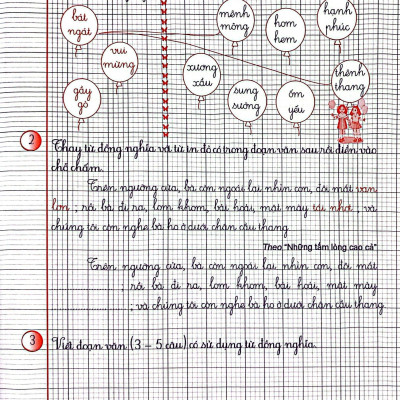 bát ngát
mênh mông
hom hem
hạnh phúc
vui mừng
xương xẩu
thênh thang
gầy gò
sung sướng
ốm yếu
2 Thay từ đồng nghĩa với từ in đỏ có trong đoạn văn sau rồi điền vào
chỗ chấm.
Trên ngưỡng cửa, bà còn ngoái lại nhìn con, đôi mắt van
lơn ; rồi bà đi ra, lom khom, bải hoải, mặt mày tái nhợt , và
chúng tôi còn nghe bà ho ở dưới chân cầu thang.
Theo "Những tấm lòng cao cả"
Trên ngưỡng cửa, bà còn ngoái lại nhìn con, đôi mắt
; rồi bà đi ra, lom khom, bải hoải, mặt mày
; và chúng tôi còn nghe bà ho ở dưới chân cầu thang.
3 Viết đoạn văn (3 - 5 câu) có sử dụng từ đồng nghĩa.